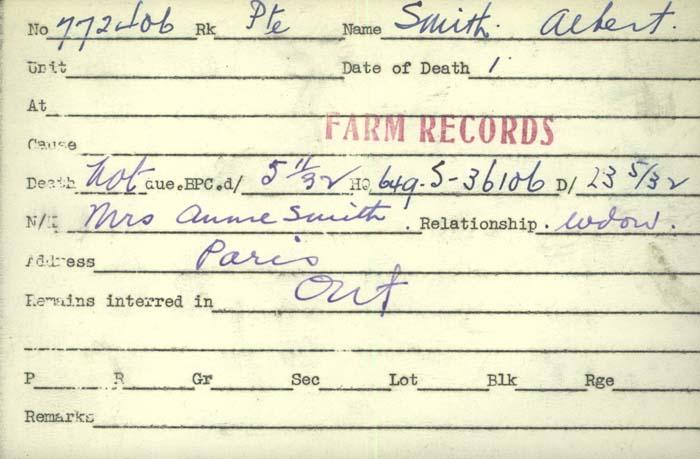 No 772406 Rk Pte Name Smith. Albert.
Unit Date of Death 1
At
FARM RECORDS
Cause
Death not due.BPC.d/ 5 11/32 HQ 649-S-36106 D/ 23 5/32
N/K Mrs Annie Smith. Relationship. widow.
Address Paris
Remains interred in Ont
P R Gr Sec Lot Blk Rge
Remarks